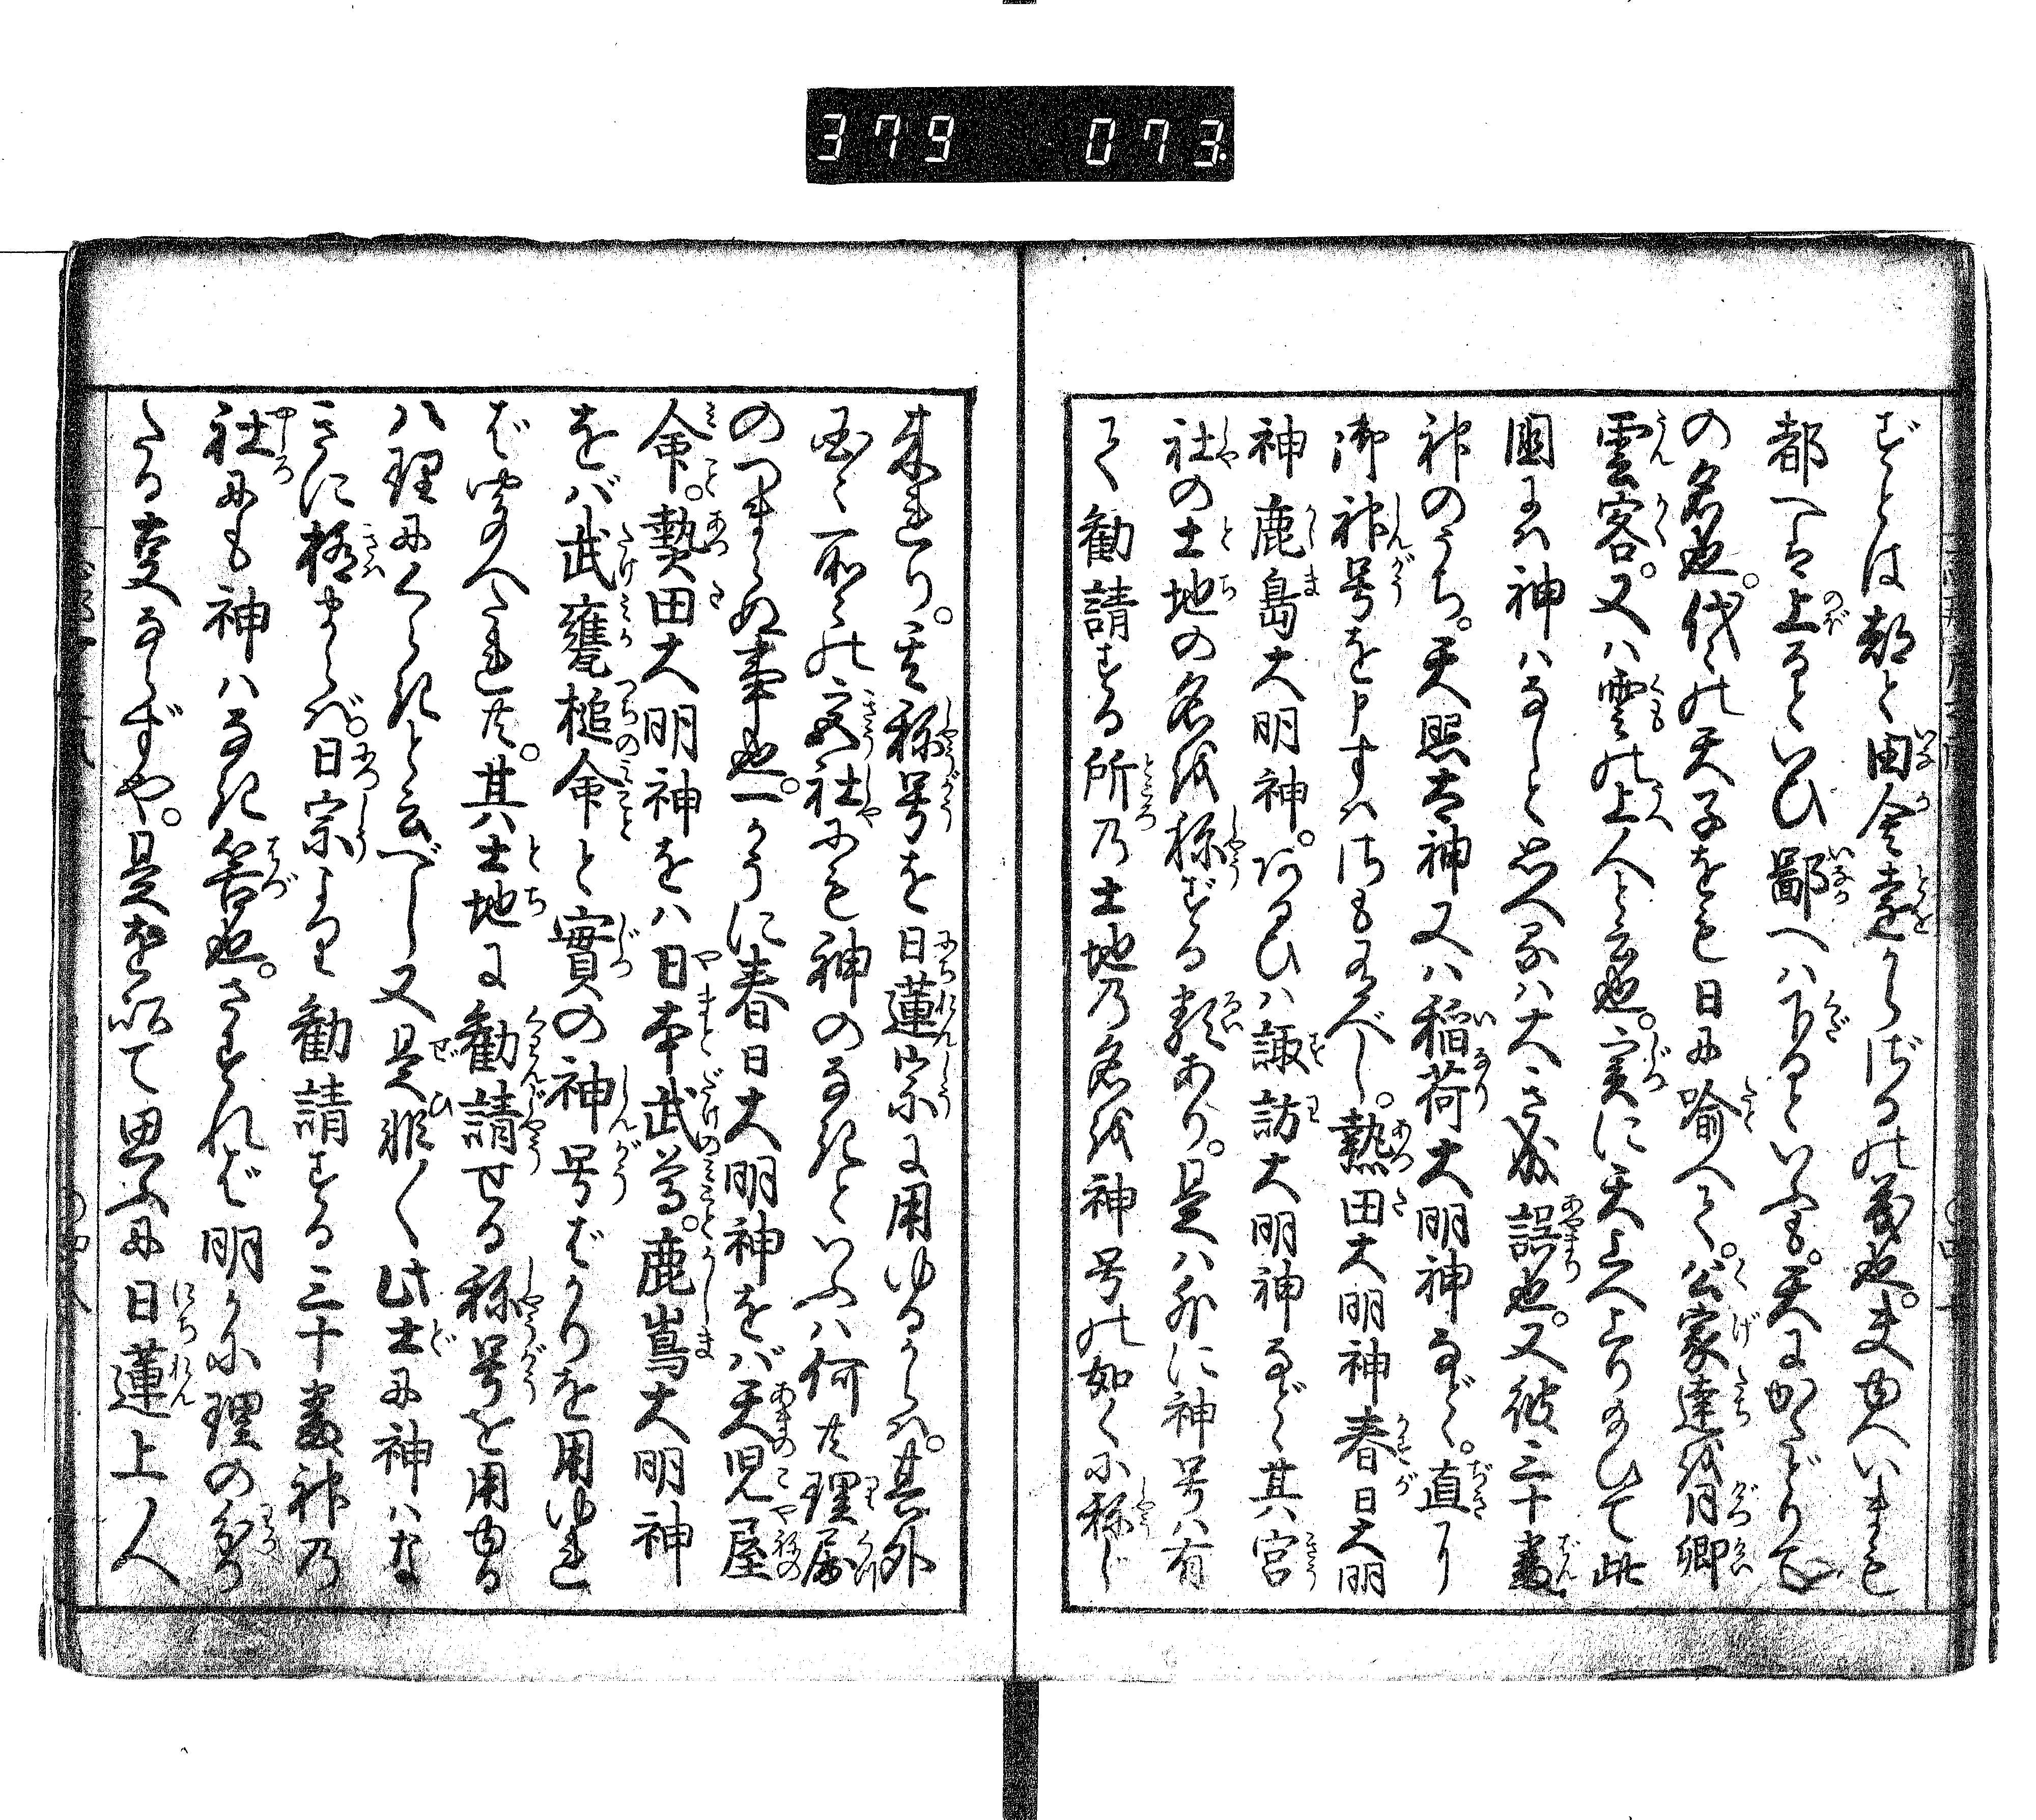 379 073
ずとは都と田舎遠からざるの義也。夫ゆへいまも
都へは上るといひ鄙へハ下るといふも。天にかたどりて
の名也。代々の天子をも日に喩へて。公家達を月卿
雲客。又ハ雲の上人と云也。実に天上へ上りたひて此
國には神ハなしと思へるハ大き成誤也。又彼三十番
神のうち。天照太神又ハ稲荷大明神など。直り
御神号を申すハさも有べし。熱田大明神春日大明
神鹿島大明神。あるひハ諏訪大明神など其宮
社の土地の名を称ずる類あり。是ハ外に神号ハ有
て勧請する所乃土地乃名を神号の如くに称じ
来れり。其称号を日蓮宗に用ゆるからハ。其外
国々所々の宮社にも神のなきといふハ何共理屈
のつまらぬ事也。一かうに春日大明神をバ天児屋
命。熱田大明神をハ日本武尊。鹿嶌大明神
をバ武甕槌命と實の神号ばかりを用ゆれ
ば聞へたれ共。其土地に勧請せる称号を用ゆる
ハ理にくらきと云べし又是非〱此土に神ハな
きに極まらバ。日宗より勧請する三十番神乃
社にも神ハなき筈也。さすれば明らかに理の分り
たる事ならずや。是を以て思ふに日蓮上人